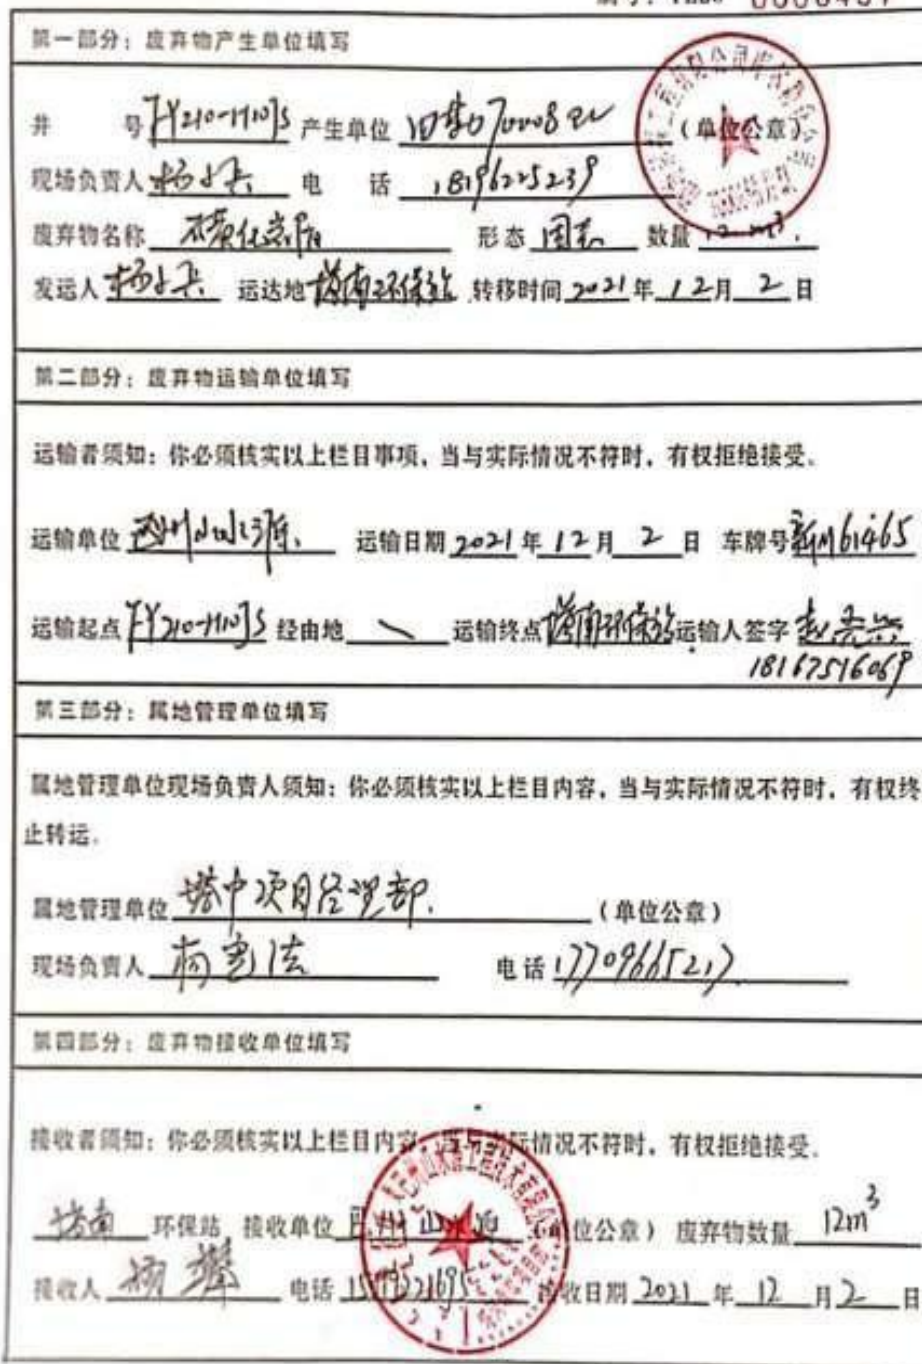 第一部分：废弃物产生单位填写
井 号 产生单位 （单位公章）
现场负责人 杨小兵 电 话 18196225239
废弃物名称 磺化岩屑 形态 固态 数量 12 m³
发运人 杨小兵 运达地 塔南环保站 转移时间 2021 年 12 月 2 日
第二部分：废弃物运输单位填写
运输者须知：你必须核实以上栏目事项，当与实际情况不符时，有权拒绝接受。
运输单位 运输日期 2021 年 12 月 2 日 车牌号 新M61465
运输起点 经由地 \ 运输终点 塔南环保站 运输人签字
18167516069
第三部分：属地管理单位填写
属地管理单位现场负责人须知：你必须核实以上栏目内容，当与实际情况不符时，有权终
止转运。
属地管理单位 塔中项目经理部. （单位公章）
现场负责人 电话 17709665217
第四部分：废弃物接收单位填写
接收者须知：你必须核实以上栏目内容，当与实际情况不符时，有权拒绝接受。
塔南 环保站 接收单位 巴州山水源 （单位公章） 废弃物数量 12m³
接收人 杨攀 电话 接收日期 2021 年 12 月 2 日